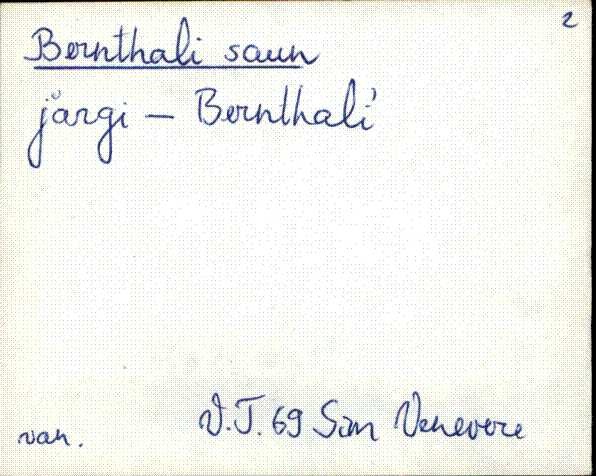 2
Bernthali saun
järgi — Bernthali'
van. V.T. 69 Sim Venevere